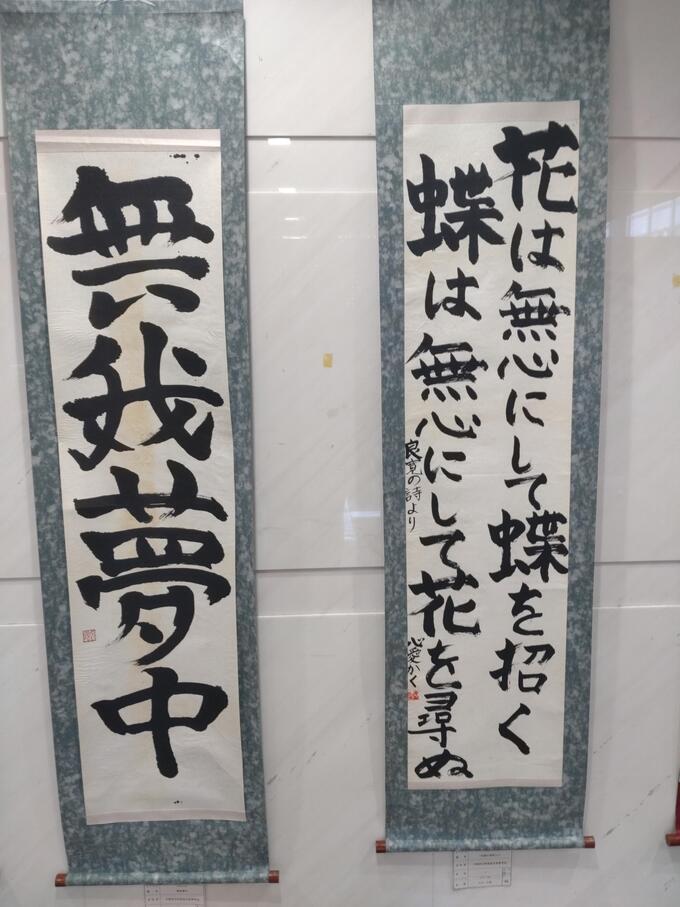 花は無心にして蝶を招く
蝶は無心にして花を尋ぬ
良寛の詩より
心愛かく
無我夢中